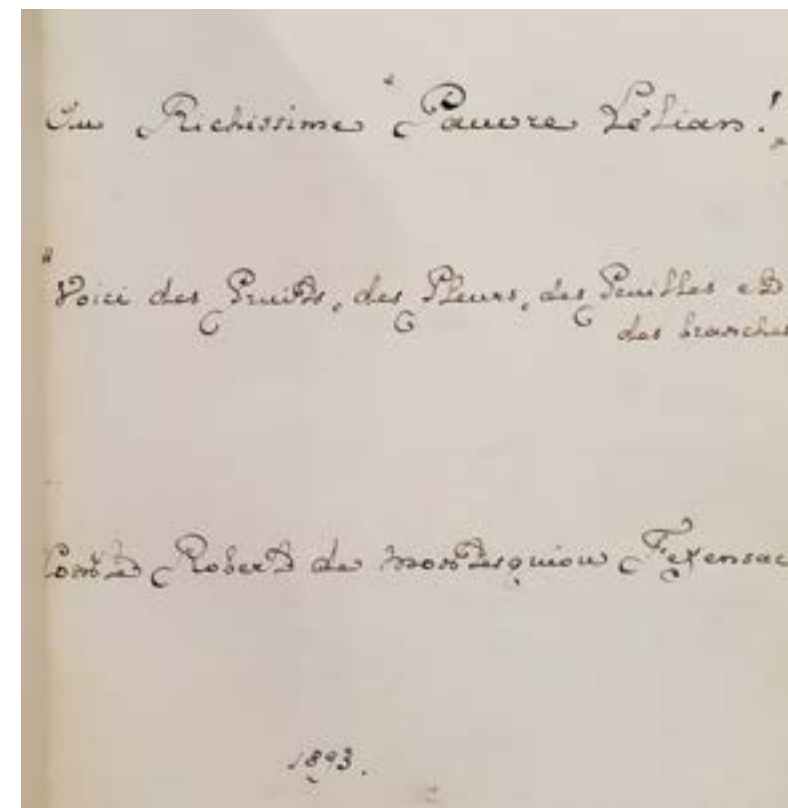 Au Richissime "Pauvre Lélian!"
"Voici des Fruits, des Fleurs, des Feuilles et
des branches
Comte Robert de Montesquiou Fezensac
1893.